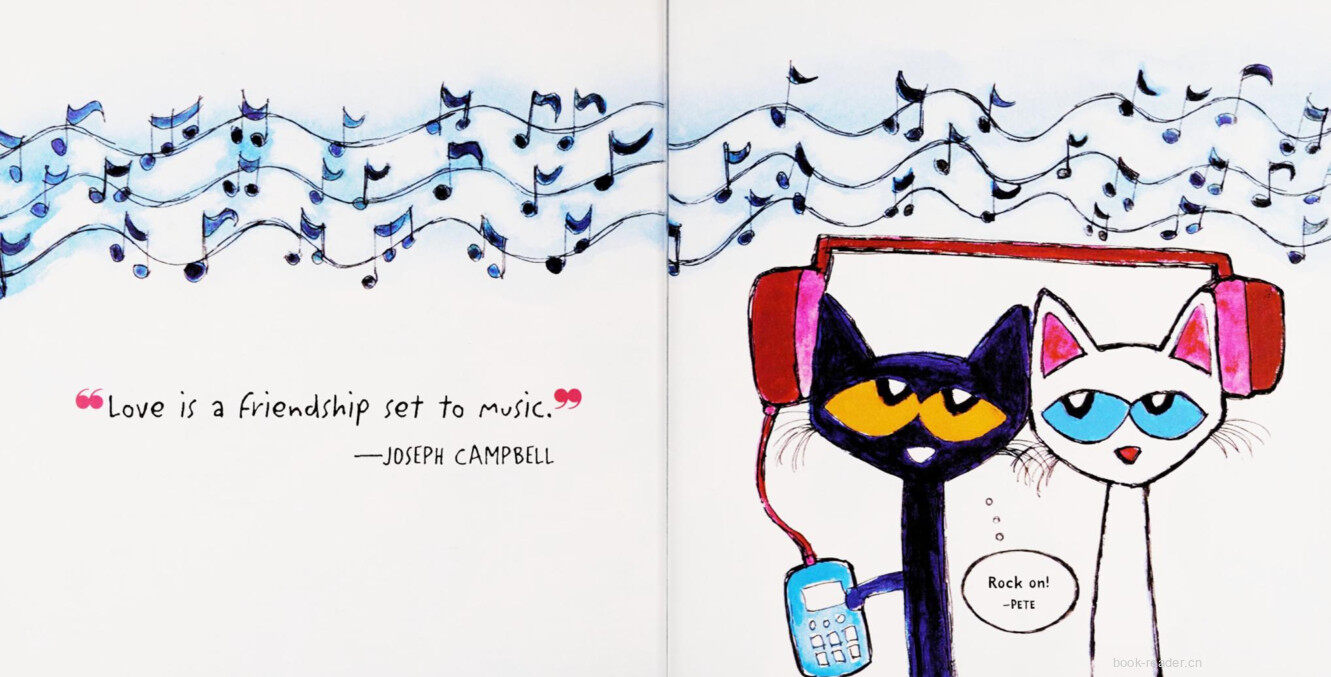 “Love is a friendship set to music.”
—JOSEPH CAMPBELL
Rock on!
—PETE
book-reader.cn